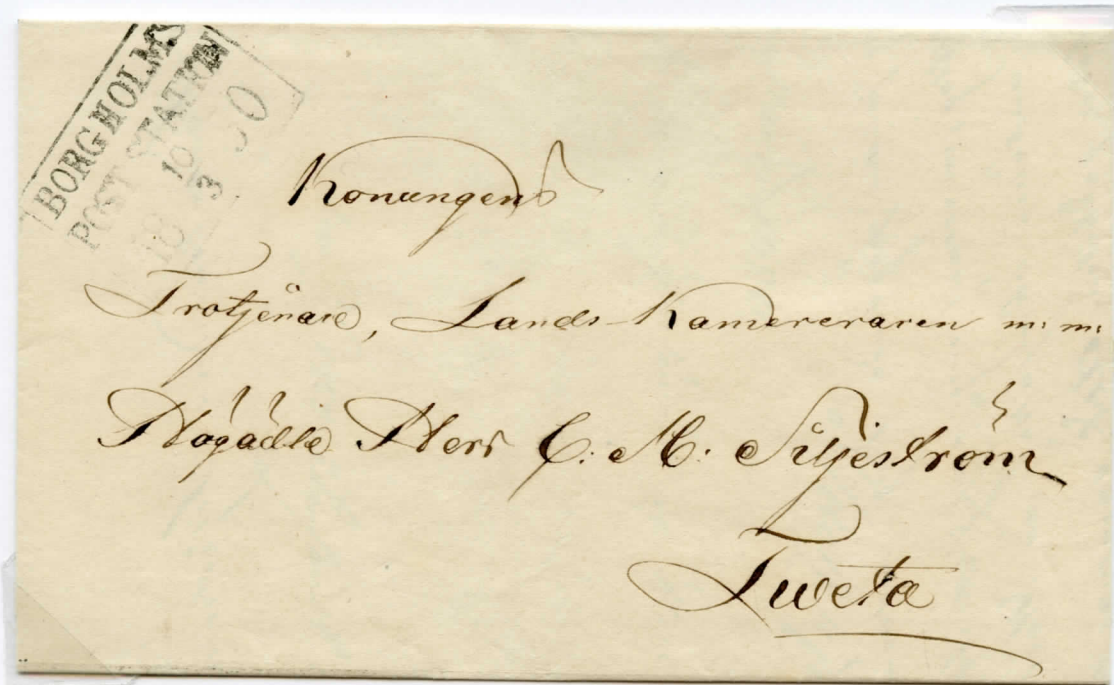 BORGHOLMS
POST STATION
10
18 50
3
Konungens
Trotjenare, Lands Kamereraren m: m:
Högädle Herr C: M: Siljeström
Tweta